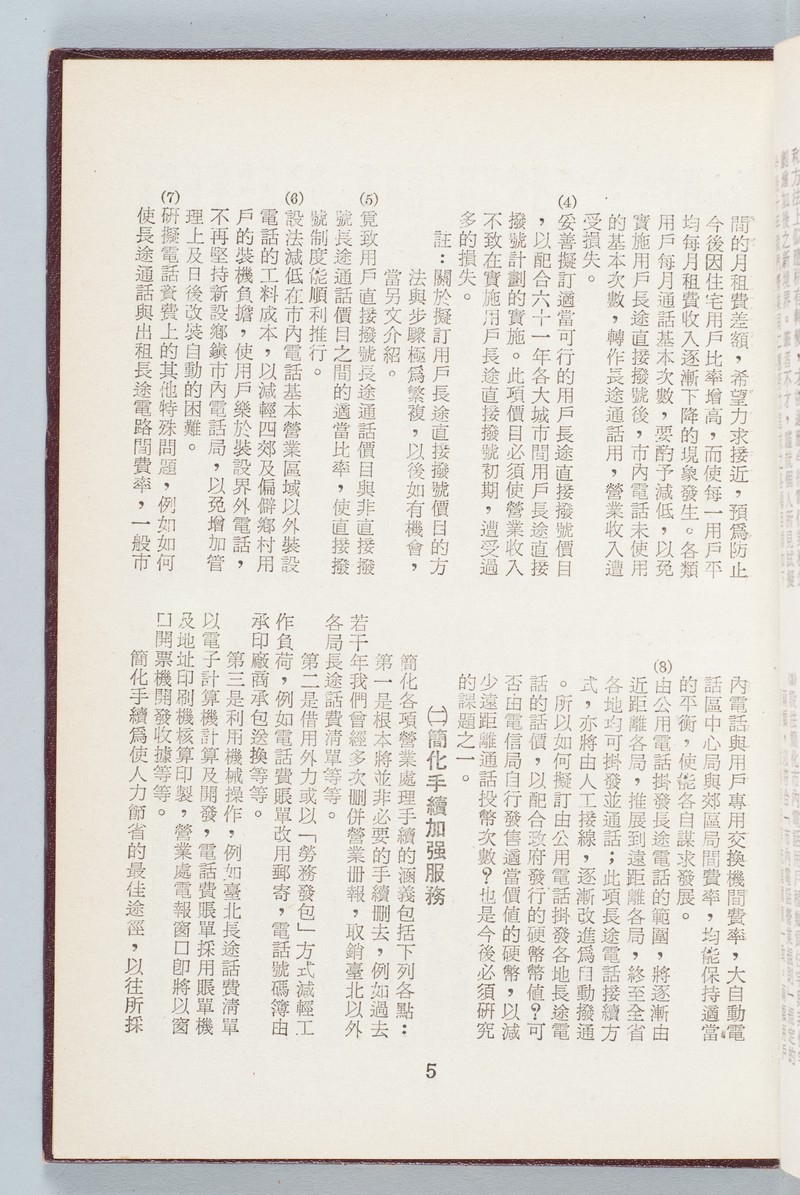 間的月租費差額，希望力求接近，預爲防止
今後因住宅用戶比率增高，而使每一用戶平
均每月租費收入逐漸下降的現象發生。各類
用戶每月通話基本次數，要酌予減低，以免
實施用戶長途直接撥號後，市內電話未使用
的基本次數，轉作長途通話用，營業收入遭
受損失。
(4)妥善擬訂適當可行的用戶長途直接撥號價目
，以配合六十一年各大城市間用戶長途直接
撥號計劃的實施。此項價目必須使營業收入
不致在實施用戶長途直接撥號初期，遭受過
多的損失。
註：關於擬訂用戶長途直接撥號價目的方
法與步驟極爲繁複，以後如有機會，
當另文介紹。
(5)覓致用戶直接撥號長途通話價目與非直接撥
號長途通話價目之間的適當比率，使直接撥
號制度能順利推行。
(6)設法減低在市內電話基本營業區域以外裝設
電話的工料成本，以減輕四郊及偏僻鄉村用
戶的裝機負擔，使用戶樂於裝設界外電話，
不再堅持新設鄉鎮市內電話局，以免增加管
理上及日後改裝自動的困難。
(7)研擬電話資費上的其他特殊問題，例如如何
使長途通話與出租長途電路間費率，一般市
內電話與用戶專用交換機間費率，大自動電
話區中心局與郊區局間費率，均能保持適當
的平衡，使能各自謀求發展。
(8)由公用電話掛發長途電話的範圍，將逐漸由
近距離各局，推展到遠距離各局，終至全省
各地均可掛發並通話；此項長途電話接續方
式，亦將由人工接線，逐漸改進爲自動撥通
。所以如何擬訂由公用電話掛發各地長途電
話的話價，以配合政府發行的硬幣幣值？可
否由電信局自行發售適當價值的硬幣，以減
少遠距離通話投幣次數？也是今後必須研究
的課題之一。
㈡簡化手續加强服務
簡化各項營業處理手續的涵義包括下列各點：
第一是根本將並非必要的手續刪去，例如過去
若干年我們曾經多次刪併營業册報，取銷臺北以外
各局長途話費清單等等。
第二是借用外力或以「勞務發包」方式減輕工
作負荷，例如電話費賬單改用郵寄，電話號碼簿由
承印廠商承包送換等等。
第三是利用機械操作，例如臺北長途話費清單
以電子計算機計算及開發，電話費賬單採用賬單機
及地址印刷機核算印製，營業處電報窗口即將以窗
口開票機開發收據等等。
簡化手續爲使人力節省的最佳途徑，以往所採
5